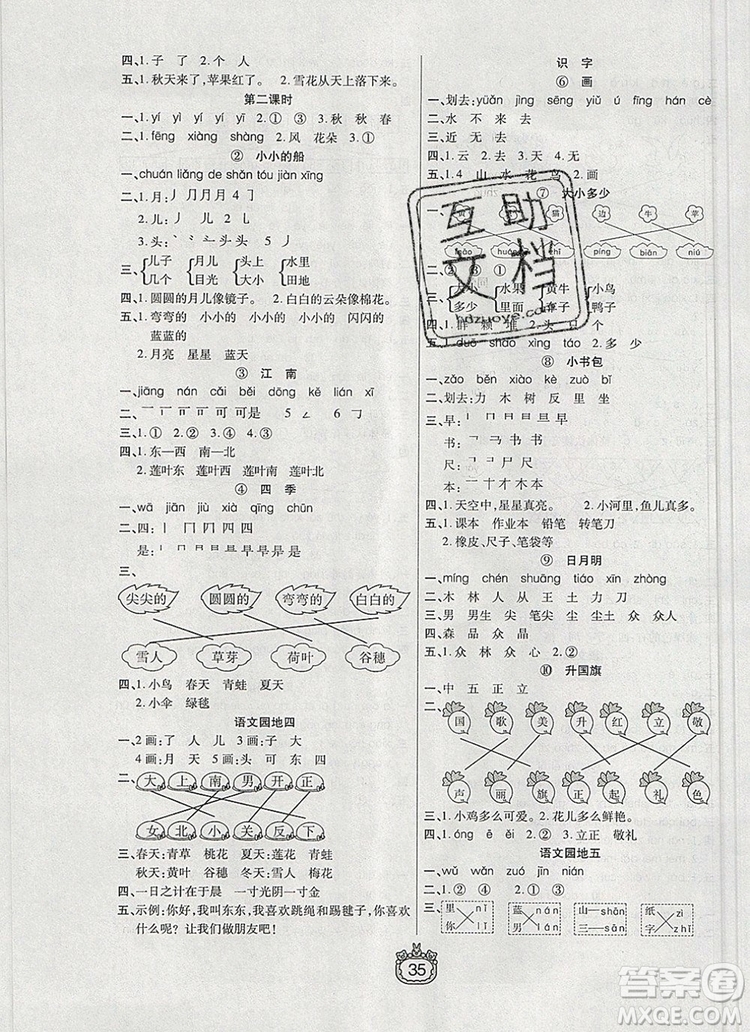 四、1. 子 了 2. 个 人
五、1. 秋天来了，苹果红了。 2. 雪花从天上落下来。
第二课时
一、1. yí yì yì yí 2. ① ③ 3. 秋 秋 春
二、1. fēng xiàng shàng 2. 风 花朵 3. ①
② 小小的船
一、chuán liǎng de shān tóu jiàn xīng
二、1. 月：丿 ⺆ 月 月 4 ㇆
2. 儿：丿 儿 2
三、儿子 几个 月儿 目光 头上 大小 水田 田地
四、1. 圆圆的月儿像镜子。 2. 白白的云朵像棉花。
五、1. 弯弯的 小小的 小小的 闪闪的
蓝蓝的
2. 月亮 星星 蓝天
③ 江 南
一、jiāng nán cǎi běi dōng kě lián xī
三、1. ① 2. ② 3. ①
四、1. 东—西 南—北
2. 莲叶东 莲叶西 莲叶南 莲叶北
④ 四 季
一、wā jiàn jiù xià qīng chūn
三、
尖尖的 圆圆的 弯弯的 白白的
雪人 草芽 荷叶 谷穗
四、1. 小鸟 春天 青蛙 夏天
2. 小伞 绿毯
语文园地四
一、2画：了 人 儿 3画：子 大
4画：月 天 5画：头 可 东 四
二、大 上 南 男 开 正
女 北 小 关 反 下
三、春天：青草 桃花 夏天：莲花 青蛙
秋天：黄叶 谷穗 冬天：雪人 雪花
四、一日之计在于晨 一寸光阴一寸金
五、示例：你好，我叫东东，我喜欢跳绳和踢毽子，你喜欢
什么呢？让我们做朋友吧！
识 字
⑥ 画
一、划去：yuǎn jìng sēng yiǔ ú fīng hán cè
二、水 不 来 去
三、近 无 去
四、1. 云 2. 去 3. 是
五、1. 4 山 水 花 鸟 2. 画
⑦ 大小多少
一、 猫 边 牛 苹
píng biān niú
二、① ② ③
三、大小 多少 水果 里面 黄牛 小鸟 鸭子
四、1. 群 颗 堆 2. 头 只
五、1. duō shǎo xiǎo dà 2. 多 少
⑧ 小书包
一、zǎo běn xiào kè zuò bǐ
二、划去：力 木 树 反 里 坐
四、1. 天空中，星星真亮。 2. 小河里，鱼儿真多。
五、1. 课本 作业本 铅笔 转笔刀
2. 橡皮、尺子、笔袋等
⑨ 日月明
一、míng chén shuāng tiáo xīn zhòng
二、木 林 人 从 王 土 力 刀
三、男 男生 尖 笔尖 尘 尘土 众 众人
四、森 品 众 晶
五、1. 众 林 众 心
⑩ 升国旗
一、中 五 正 立
二、国 歌 美 升 红 立 敬
声 丽 旗 正 起 礼 色
三、1. 小鸡多么可爱。 2. 花儿多么鲜艳。
四、1. óng ě ěi 2. ② 3. 立正 敬礼
语文园地五
一、wǔ wǎn zuó jīn nián
二、1. ② ④ 2. ① ③
三、里 nǐ 蓝 nán 山—shān 纸 zì
你 lǐ 男 lán 三—sān 字 zhǐ
35
互助
文档
hdzuoye.com
答案圈
MXQE.COM